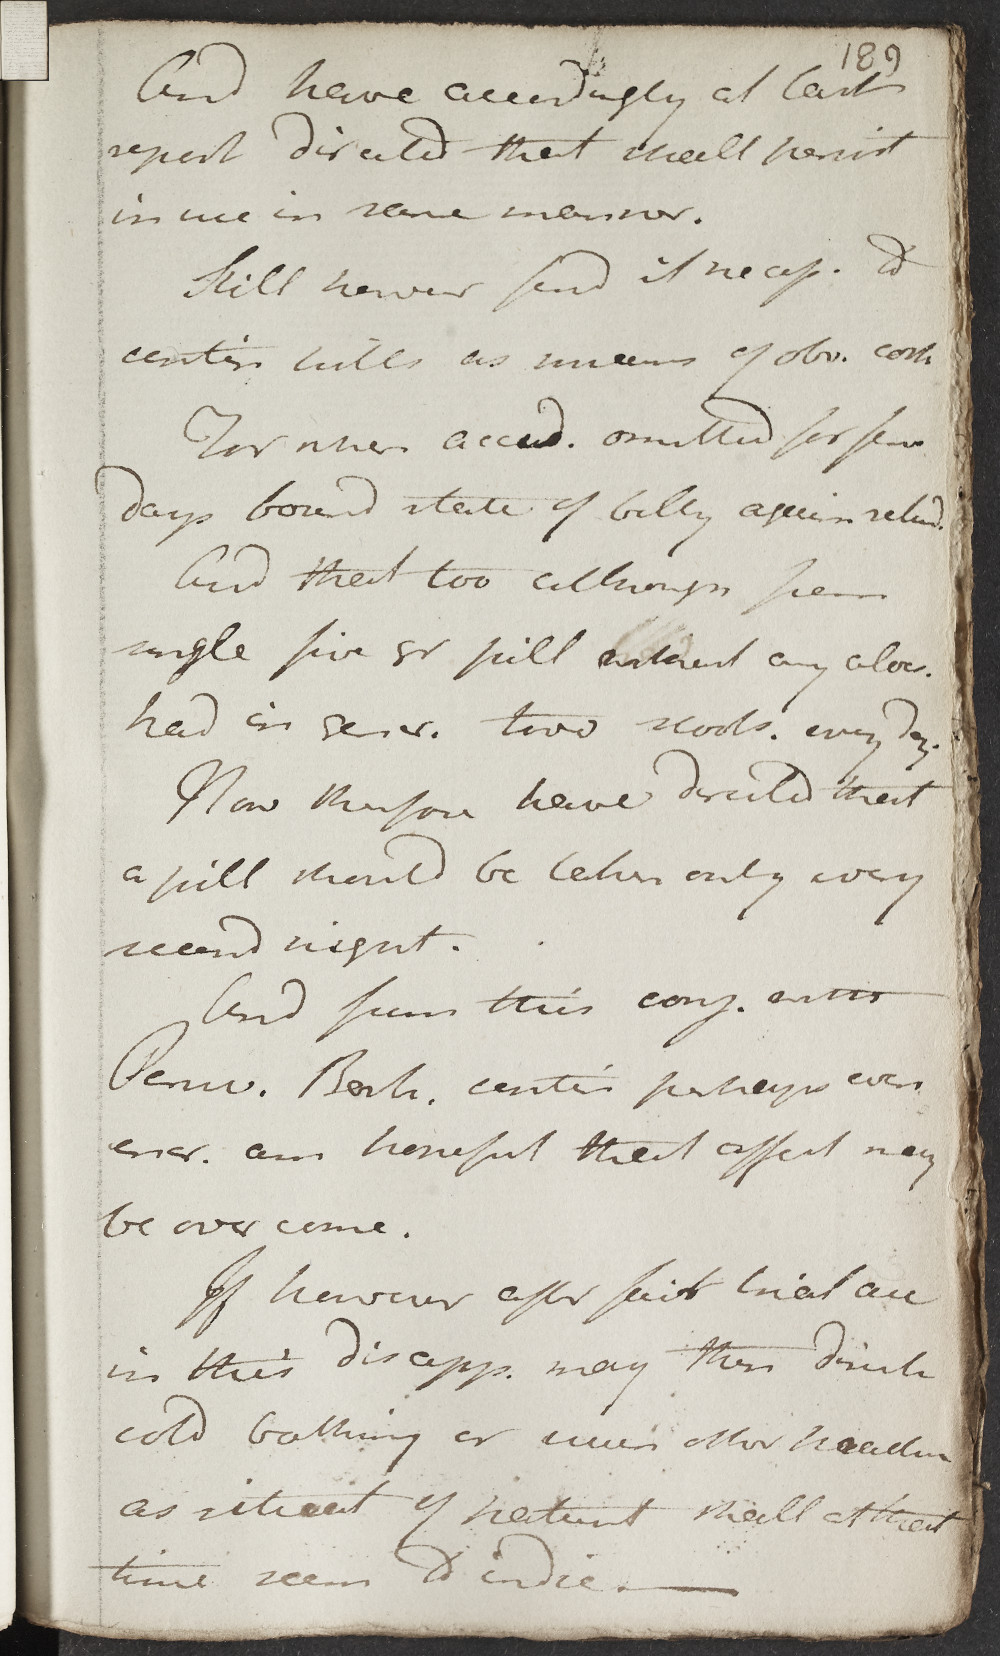 189
And have accordingly at last
report directed that shall persist
in use in same manner.
Still however find it necess. to
contin pills as means of obv. cost
For when accid. omitted for few
days bound state of belly again return.
And that too although from
single five gr pill without any aloes.
had in gener. two stools. every day.
Now therefore have directed that
a pill should be taken only every
second night.
And from this conj. with
Peruv. Bark. contin perhaps even
ever. am hopeful that affect may
be overcome.
If however after fair trial are
in this disapp. may then direct
cold bathing or even other
as situat of patient shall at that
time seem to indic.